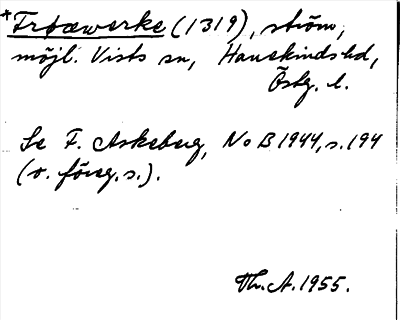 *Trøæwerke (1319), ström,
möjl. Vists sn, Hanekinds hd,
Östg. l.
Se F. Askeberg, NoB 1944, s. 194
(o. föreg. s.).
Th. A. 1955.